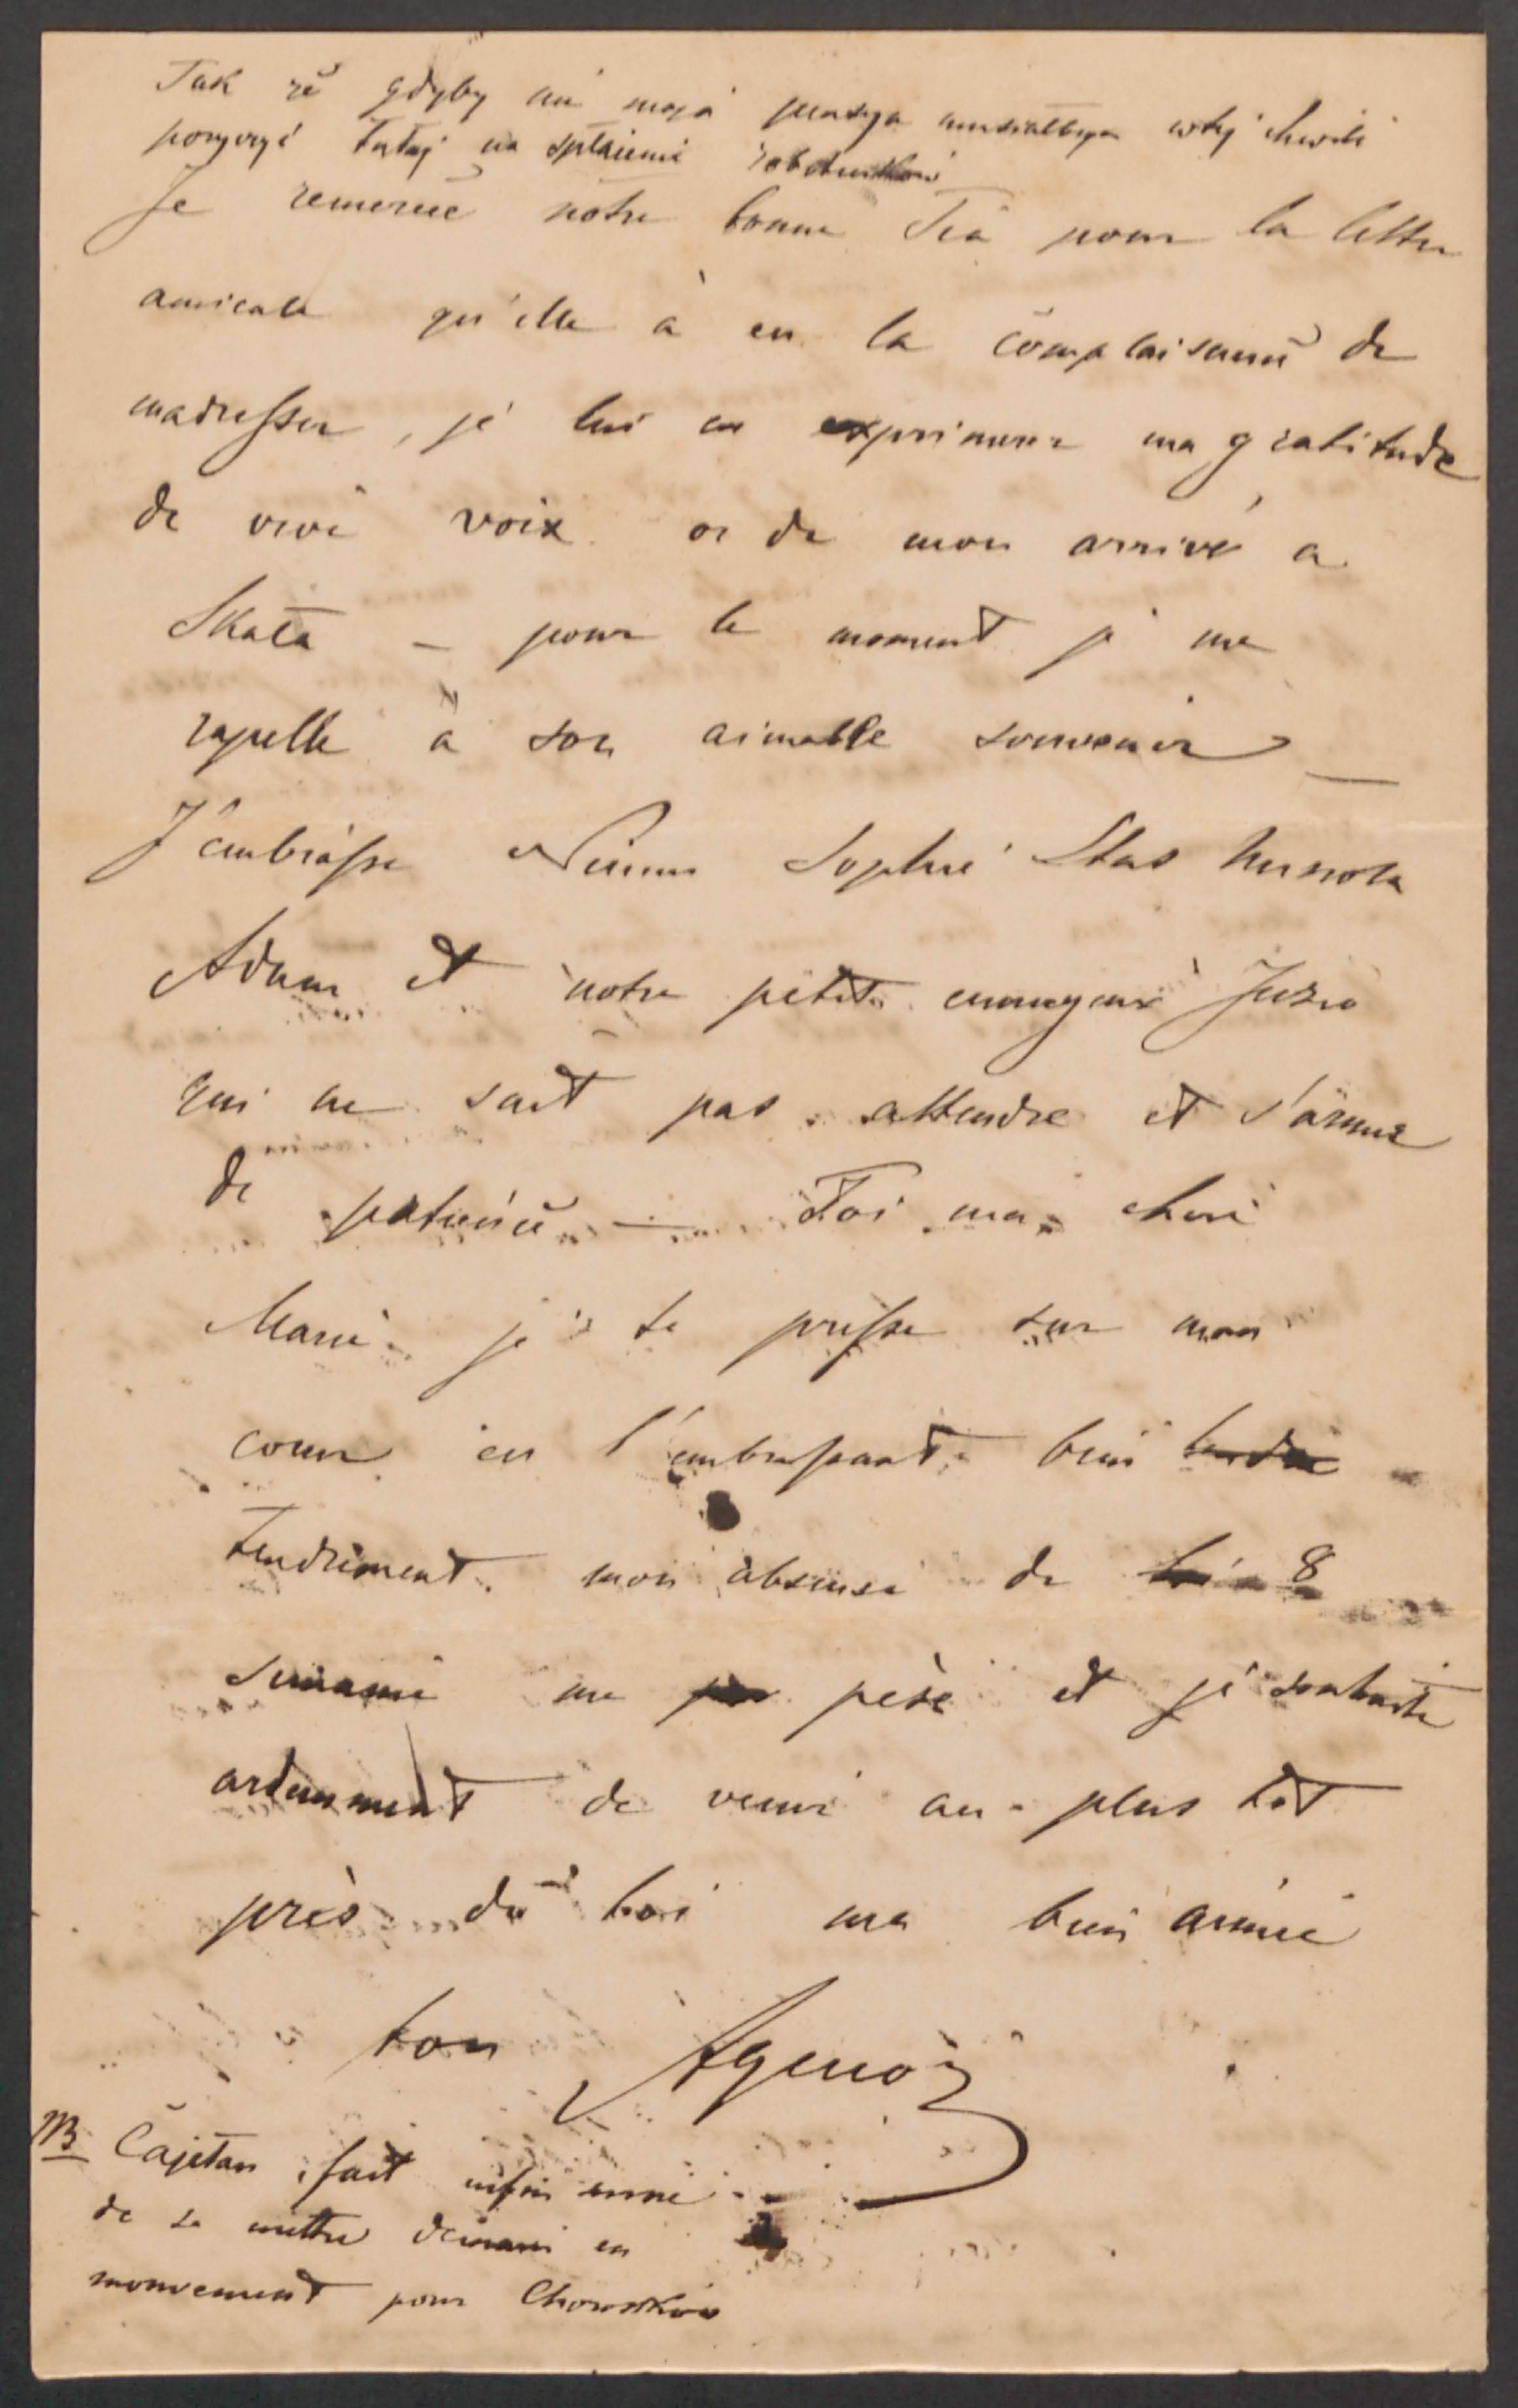 Tak że gdyby nie moja pensya musiałbym w tej chwili
pożyczyć tutaj na spłacenie robotników
Je remercie notre bonne Tia pour la lettre
amicale qu'elle à eu la complaisance de
madresser, je lui en exprimerai ma gratitude
de vive voix or de mon arrivé a
Skała – pour le moment je me
rapelle à son aimable souvenir —
J'embrasse Sophie Stas
Adam et notre petit Juzio
qui ne sait pas attendre et s'arme
de patience — Toi ma chere
Marie je te presse sur mon
coeur en t'embrassant bien
tendrement. mon absense de 8
semaine me pèse et je souhaite
ardemment de venir au plus tôt
près de toi ma bien aimée
ton Agenor
NB Cajetan fait
de se mettre demain en
mouvement pour